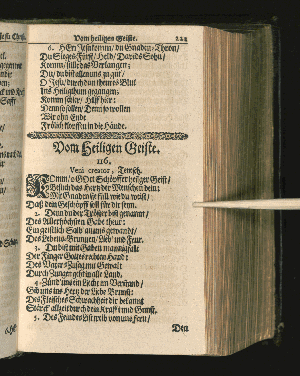 Vom heiligen Geiste. 223
6. HErr Jesu komm / du Gnaden-Thron /
Du Sieges-Fürst / Held / Davids Sohn /
Komm / stille das Verlangen;
Du / du bist allen uns zu gut /
O Jesu / durch dein theures Blut
Ins Heiligthum gegangen:
Komm schier / Hilff hier:
Denn so sollen / Denn so wollen
Wir ohn Ende
Frölich klopffen in die Hände.
Vom Heiligen Geiste.
116.
Veni creator, Teutsch.
KOmm / o GOtt Schöpffer heiliger Geist /
Besuch das Hertz der Menschen dein:
Mit Gnaden sie füll wie du weist /
Daß dein Geschöpff soll für dir seyn.
2. Denn du der Tröster bist genannt /
Des Allerhöchsten Gabe theur:
Ein geistlich Salb an uns gewandt /
Des Lebens Brunnen / Lieb und Feur.
3. Du bist mit Gaben mannigfalt
Der Finger Gottes rechten Hand:
Des Vaters Zusag mit Gewalt
Durch Zungen geht in alle Land.
4. Zünd uns ein Licht an Verstand /
Gib uns ins Hertz der Liebe Brunst:
Des Fleisches Schwachheit dir bekannt
Stärck allzeit durch dein Krafft und Gunst.
5. Des Feindes List treib von uns fern /
Den